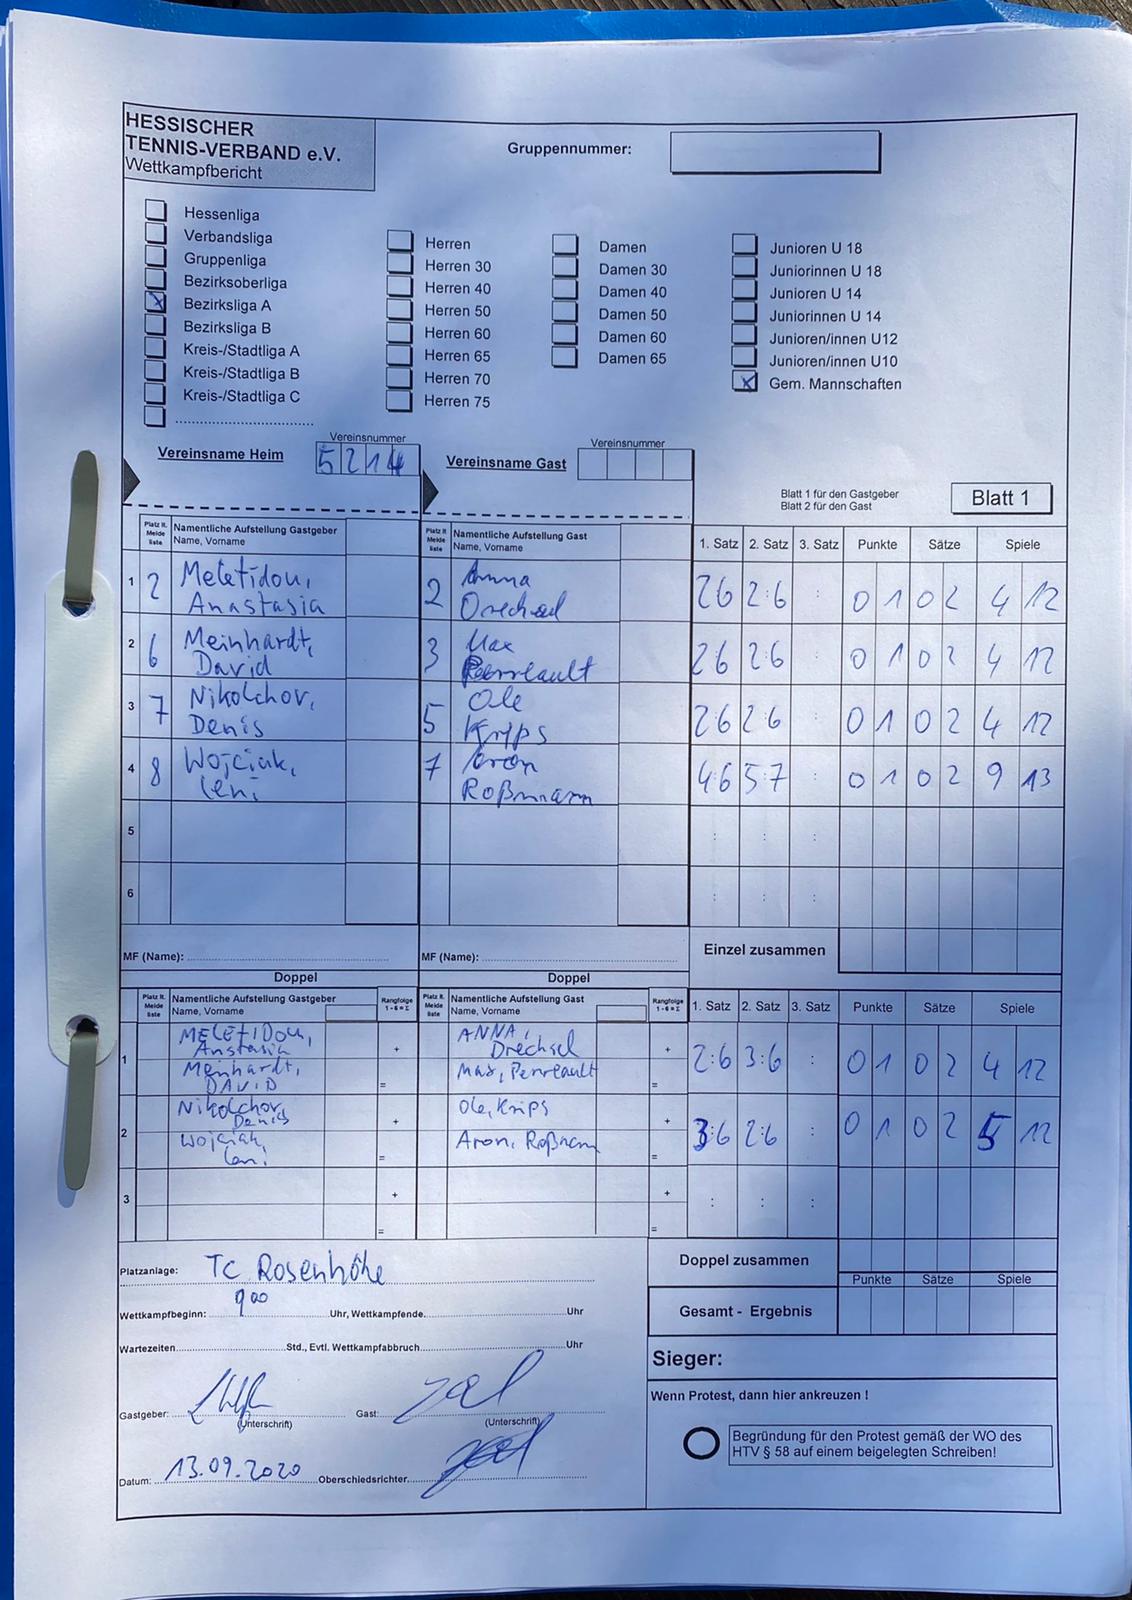 HESSISCHER
TENNIS-VERBAND e.V.
Wettkampfbericht
Gruppennummer:
Hessenliga
Verbandsliga
Gruppenliga
Bezirksoberliga
Bezirksliga A
Bezirksliga B
Kreis-/Stadtliga A
Kreis-/Stadtliga B
Kreis-/Stadtliga C
Herren
Herren 30
Herren 40
Herren 50
Herren 60
Herren 65
Herren 70
Herren 75
Damen
Damen 30
Damen 40
Damen 50
Damen 60
Damen 65
Junioren U 18
Juniorinnen U 18
Junioren U 14
Juniorinnen U 14
Junioren/innen U12
Junioren/innen U10
Gem. Mannschaften
Vereinsname Heim
Vereinsnummer
5214
Vereinsname Gast
Vereinsnummer
Blatt 1 für den Gastgeber
Blatt 2 für den Gast
Blatt 1
Platz lt. Melde liste
Namentliche Aufstellung Gastgeber
Name, Vorname
Platz lt. Melde liste
Namentliche Aufstellung Gast
Name, Vorname
1. Satz 2. Satz 3. Satz Punkte Sätze Spiele
1 2 Meletidou, Anastasia 2 Anna 26 2:6 : 0 1 0 2 4 12
2 6 Meinhardt, David 3 Max Perreault 26 26 : 0 1 0 2 4 12
3 7 Nikolchov, Denis 5 Ole Krips 26 26 : 0 1 0 2 4 12
4 8 Wojciak, Leni 7 Aron Roßmann 4:6 5:7 : 0 1 0 2 9 13
5 : : :
6 : : :
MF (Name):
MF (Name):
Einzel zusammen
Doppel
Doppel
Platz lt. Melde liste
Namentliche Aufstellung Gastgeber
Name, Vorname
Rangfolge
1-6 = Σ
Platz lt. Melde liste
Namentliche Aufstellung Gast
Name, Vorname
Rangfolge
1-6 = Σ
1. Satz 2. Satz 3. Satz Punkte Sätze Spiele
1 MELETIDOU, Anstasia + ANNA, Drechsel + 2:6 3:6 : 0 1 0 2 4 12
Meinhardt, DAVID = Max, Perreault =
2 Nikolchov, Denis + Ole, Krips + 3:6 2:6 : 0 1 0 2 5 12
Wojciak, Leni = Aron, Roßmann =
3 + + : : :
= =
Doppel zusammen
Punkte Sätze Spiele
Gesamt - Ergebnis
Platzanlage: TC Rosenhöhe
Wettkampfbeginn: 9 00 Uhr, Wettkampfende. Uhr
Wartezeiten Std., Evtl. Wettkampfabbruch Uhr
Gastgeber:
(Unterschrift)
Gast:
(Unterschrift)
Datum: 13.09.2020 Oberschiedsrichter
Sieger:
Wenn Protest, dann hier ankreuzen !
Begründung für den Protest gemäß der WO des
HTV § 58 auf einem beigelegten Schreiben!